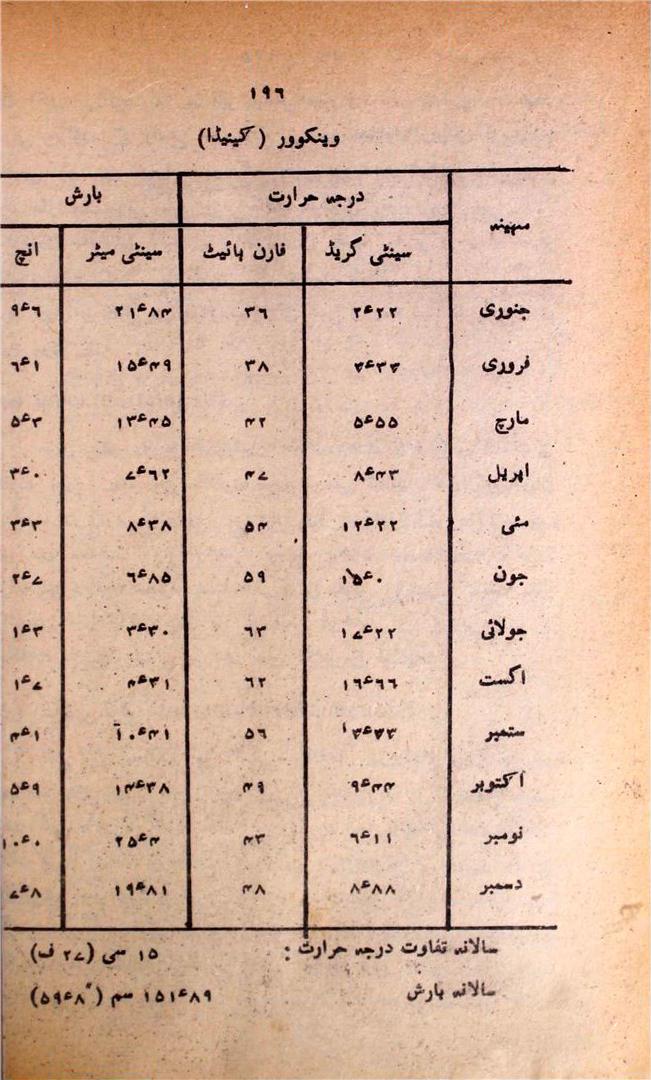 ۱۹۶
وینکوور (کینیڈا)
مہینہ درجہ حرارت بارش
سینٹی گریڈ فارن ہائیٹ سینٹی میٹر انچ
جنوری ۲ء۲۲ ۳۶ ۲۱ء۸۴ ۹ء۶
فروری ۳ء۳۳ ۳۸ ۱۵ء۴۹ ۶ء۱
مارچ ۵ء۵۵ ۴۲ ۱۳ء۴۵ ۵ء۳
اپریل ۸ء۴۳ ۴۷ ۷ء۶۲ ۳ء۰
مئی ۱۲ء۲۲ ۵۴ ۸ء۳۸ ۳ء۳
جون ۱۵ء۰ ۵۹ ۶ء۸۵ ۲ء۷
جولائی ۱۷ء۲۲ ۶۳ ۳ء۳۰ ۱ء۳
اکست ۱۶ء۶۶ ۶۲ ۴ء۳۱ ۱ء۷
ستمبر ۱۳ء۳۳ ۵۶ ۱۰ء۴۱ ۴ء۱
اکتوبر ۹ء۴۴ ۴۹ ۱۴ء۳۸ ۵ء۹
نومبر ۶ء۱۱ ۴۳ ۲۵ء۴ ۱۰ء۰
دسمبر ۸ء۸۸ ۴۸ ۱۹ء۸۱ ۷ء۸
سالانہ تفاوت درجہ حرارت : ۱۵ سی (۲۷ ف)
سالانہ بارش ۱۵۱ء۸۹ سم (۵۹ء۸ً)